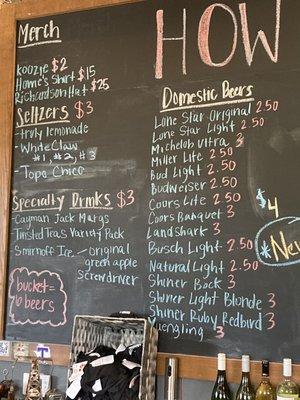 Merch
Koozie $2
Home's Shirt $15
Richardson Hat $25
Seltzers $3
-Truly lemonade
-White Claw
#1, #2, #3
-Topo Chico
Specialty Drinks $3
-Cayman Jack Margs
-Twisted Tea's Variety Pack
-Smirnoff Ice -original
green apple
screwdriver
bucket=
10 beers
HOW
Domestic Beers
Lone Star Original 2.50
Lone Star Light 2.50
Michelob Ultra 3
Miller Lite 2.50
Bud Light 2.50
Budweiser 2.50
Coors Lite 2.50
Coors Banquet 3
Landshark 3
Busch Light 2.50
Natural Light 2.50
Shiner Bock 3
Shiner Light Blonde 3
Shiner Ruby Redbird 3
Yuengling 3
$4